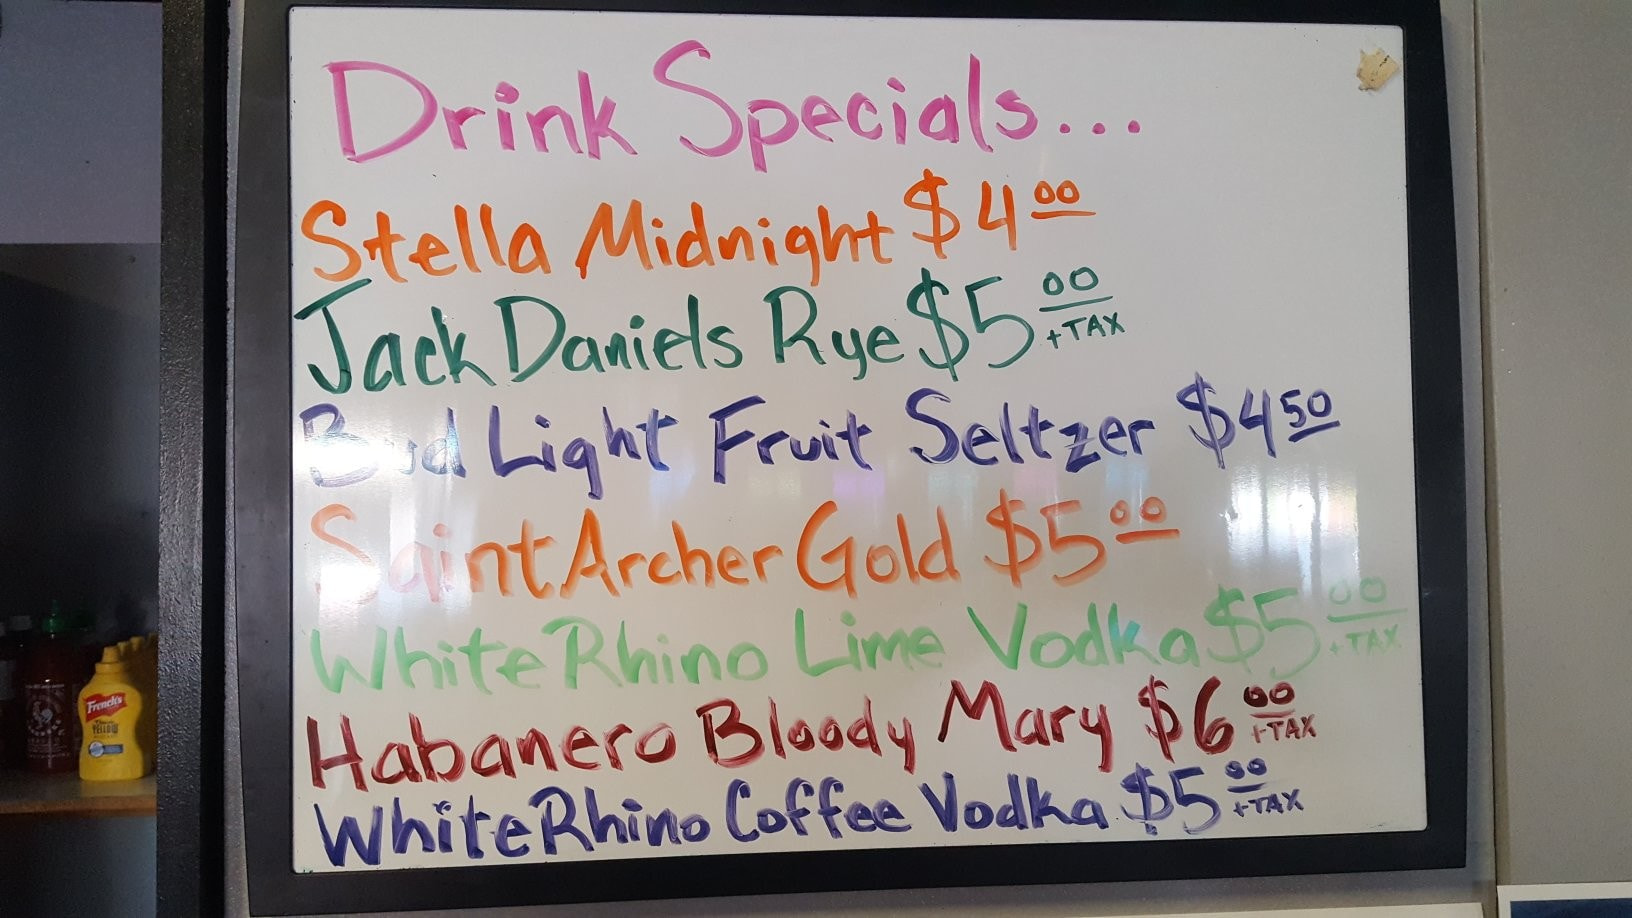 Drink Specials...
Stella Midnight $4 00
Jack Daniels Rye $5 00 +TAX
Bud Light Fruit Seltzer $4 50
Saint Archer Gold $5 00
White Rhino Lime Vodka $5 00 +TAX
Habanero Bloody Mary $6 00 +TAX
White Rhino Coffee Vodka $5 00 +TAX
French's
YELLOW